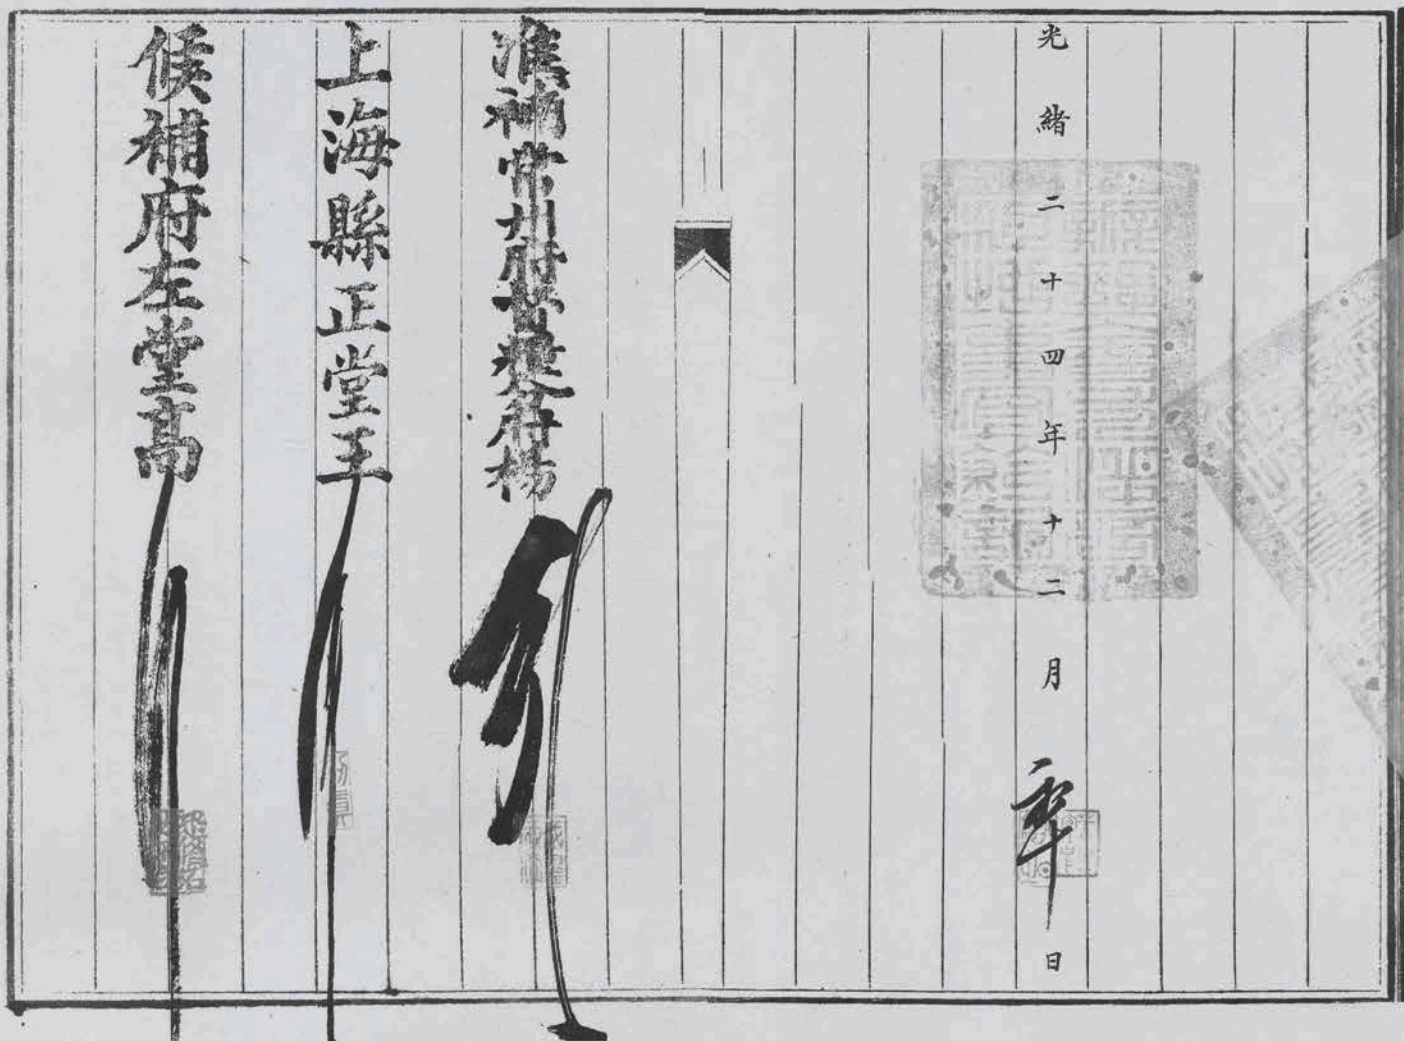 光緒二十四年十二月 日
准補常州府
楊
上海縣正堂王
候補府左堂高